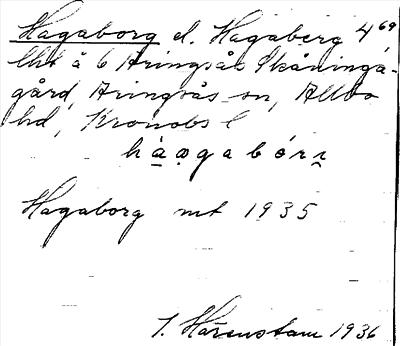 Hagaborg el. Hagaberg 4⁶⁹
lht å 6 Aringsås Skåninga-
gård, Aringsås sn, Allbo
hd, Kronobs l
Hagaborg mt 1935
J. Hårenstam 1936